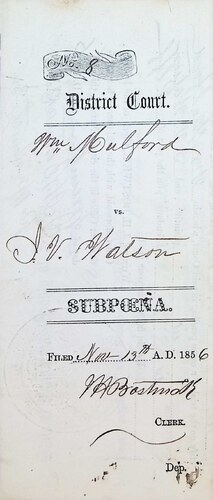 No. 8
District Court.
Wm Mulford
vs.
J. V. Watson
SUBPŒNA.
FILED Nov 13th A. D. 1856
CLERK.
Dep.